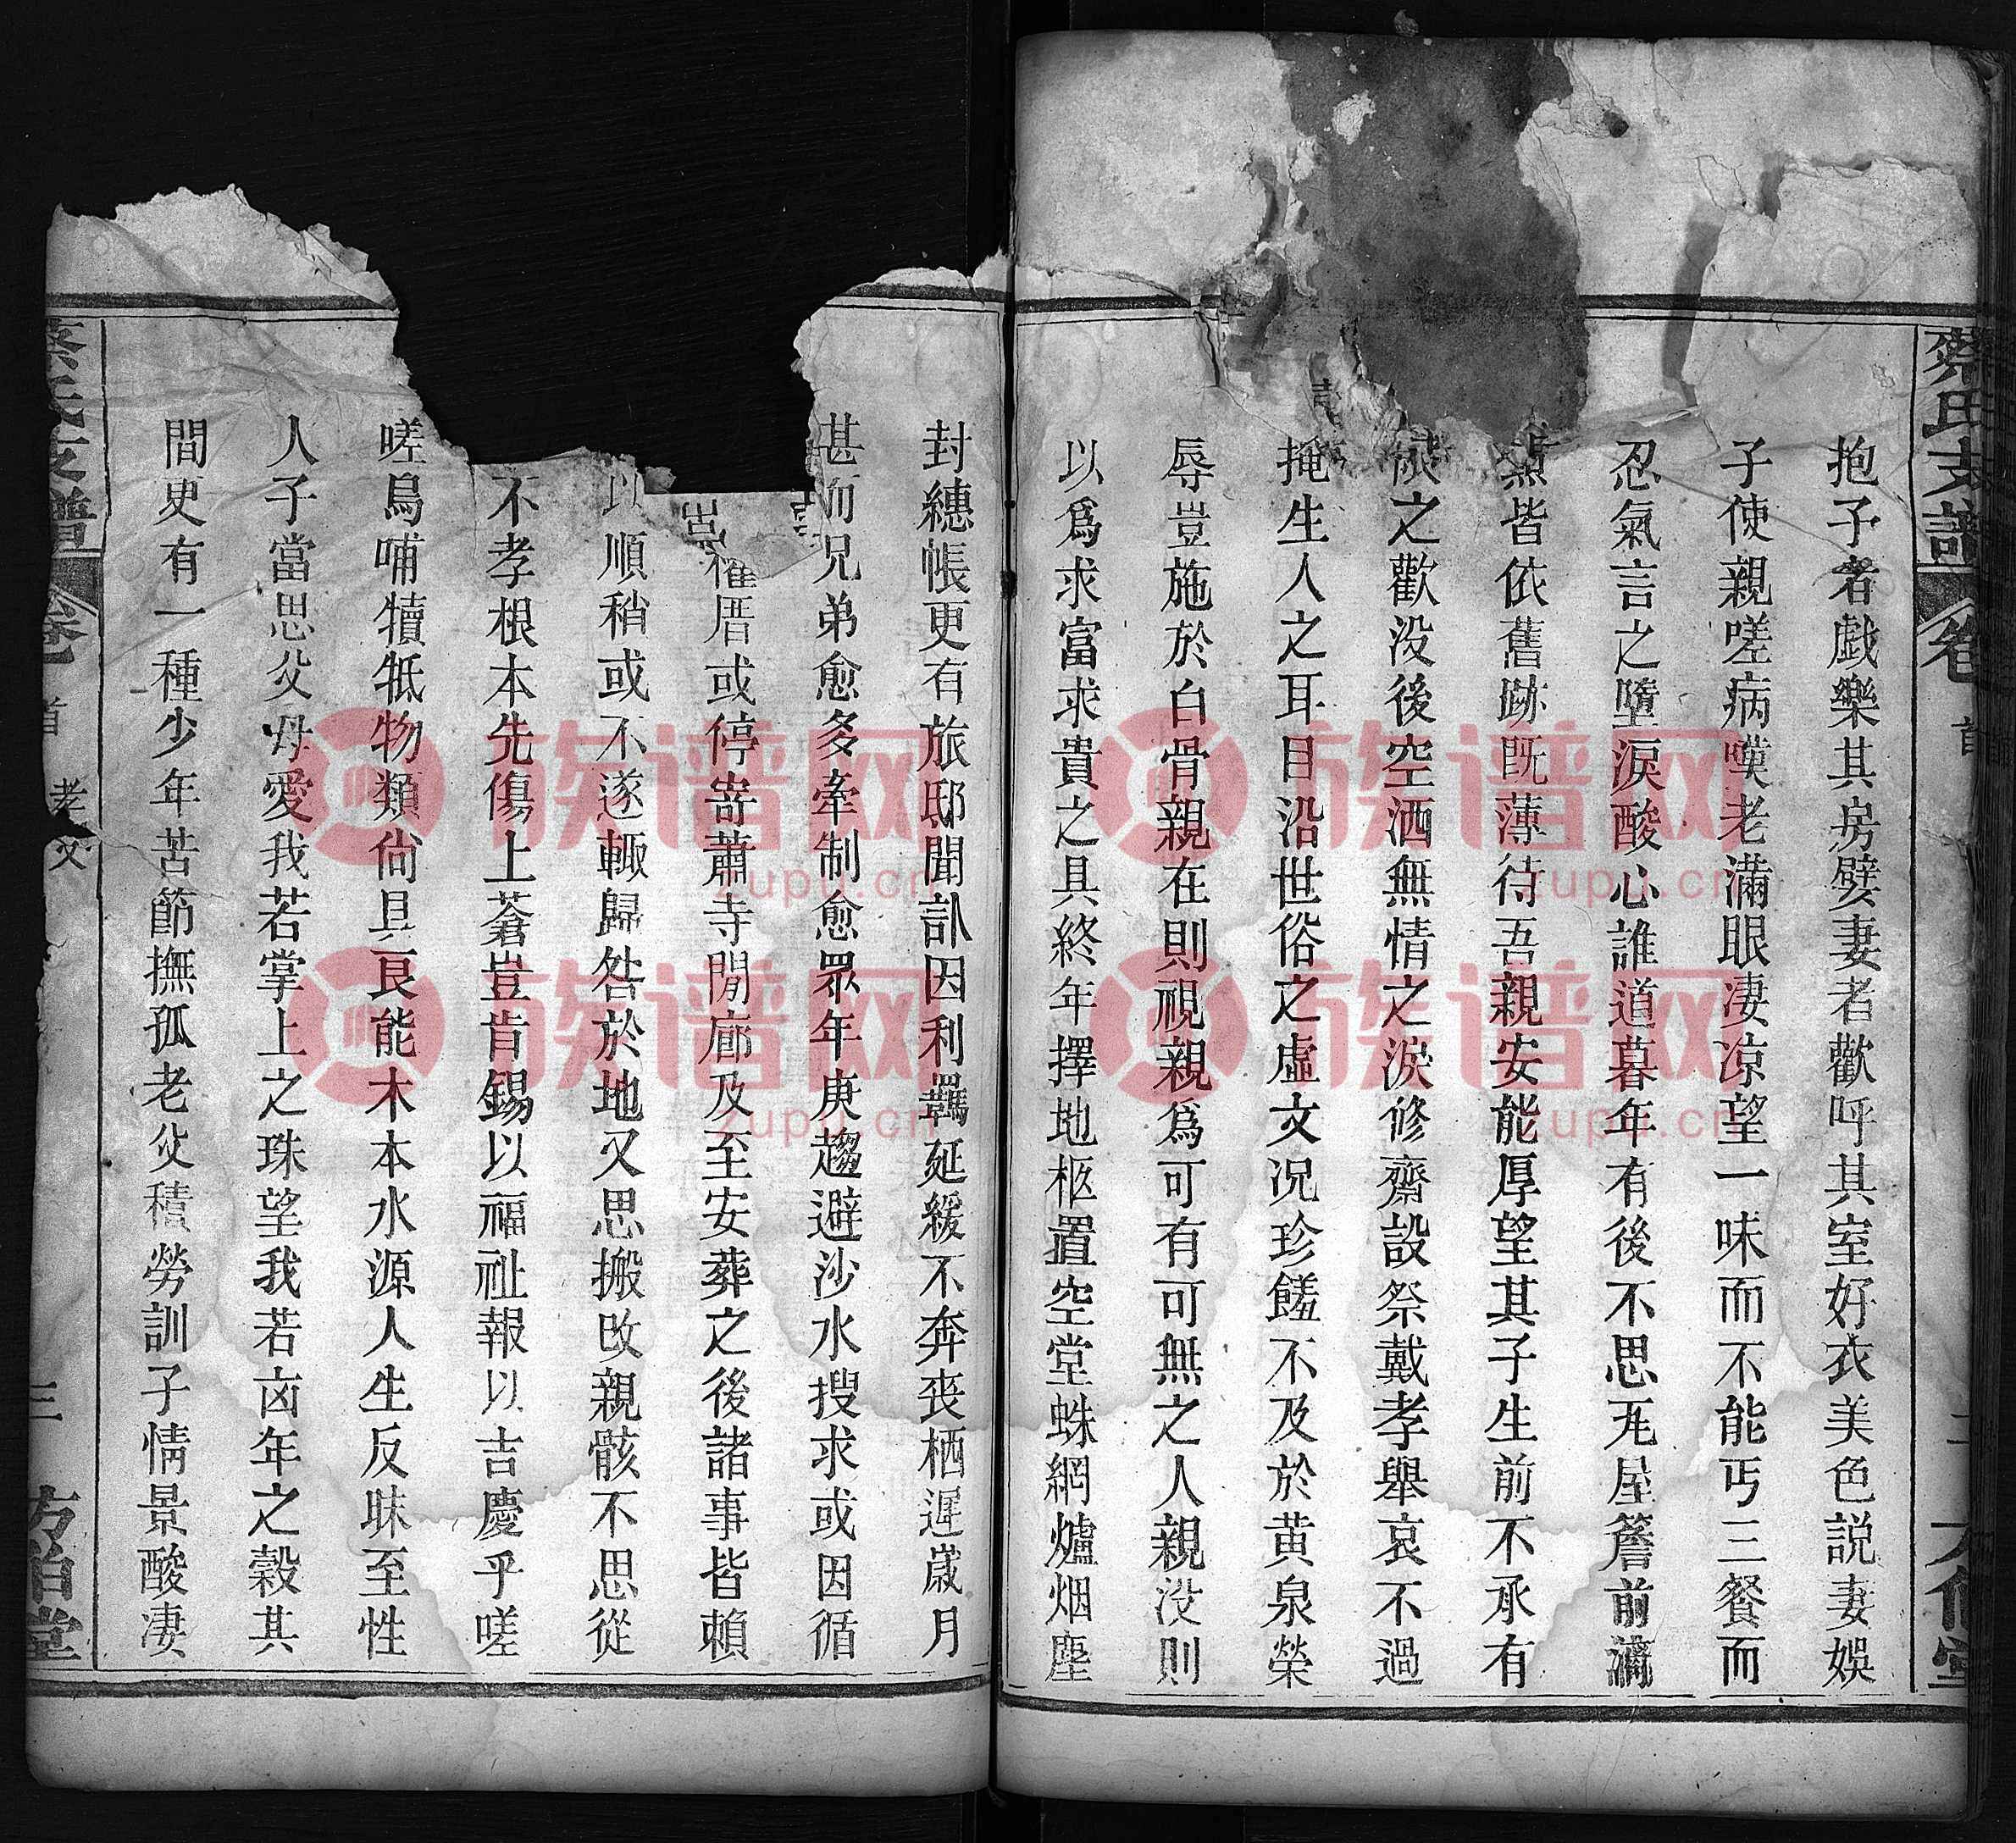 蔡氏支譜
卷
首
二
抱子者戯樂其房嬖妻者歡呼其室好衣美色説妻娛
子使親嗟病嘆老滿眼淒凉望一味而不能丐三餐而
忍氣言之墮淚酸心誰道暮年有後不思瓦屋簷前滴
皆依舊跡既薄待吾親安能厚望其子生前不承有
之歡没後空洒無情之淚修齋設祭戴孝舉哀不過
掩生人之耳目沿世俗之虛文况珍饈不及於黄泉榮
辱豈施於白骨親在則視親爲可有可無之人親没則
以爲求富求貴之具終年擇地柩置空堂蛛網爐烟塵
封繐帳更有旅邸聞訃因利羈延緩不奔喪栖遲歲月
甚而兄弟愈多牽制愈眾年庚趨避沙水搜求或因循
厝或停寄蕭寺閒廊及至安葬之後諸事皆賴
以順稍或不遂輒歸咎於地又思搬改親骸不思從
不孝根本先傷上蒼豈肯錫以福祉報以吉慶乎嗟
嗟烏哺犢牴物類尚具良能木本水源人生反昧至性
人子當思父母愛我若掌上之珠望我若凶年之穀其
間更有一種少年苦節撫孤老父積勞訓子情景酸淒
蔡氏支譜
卷
首
三